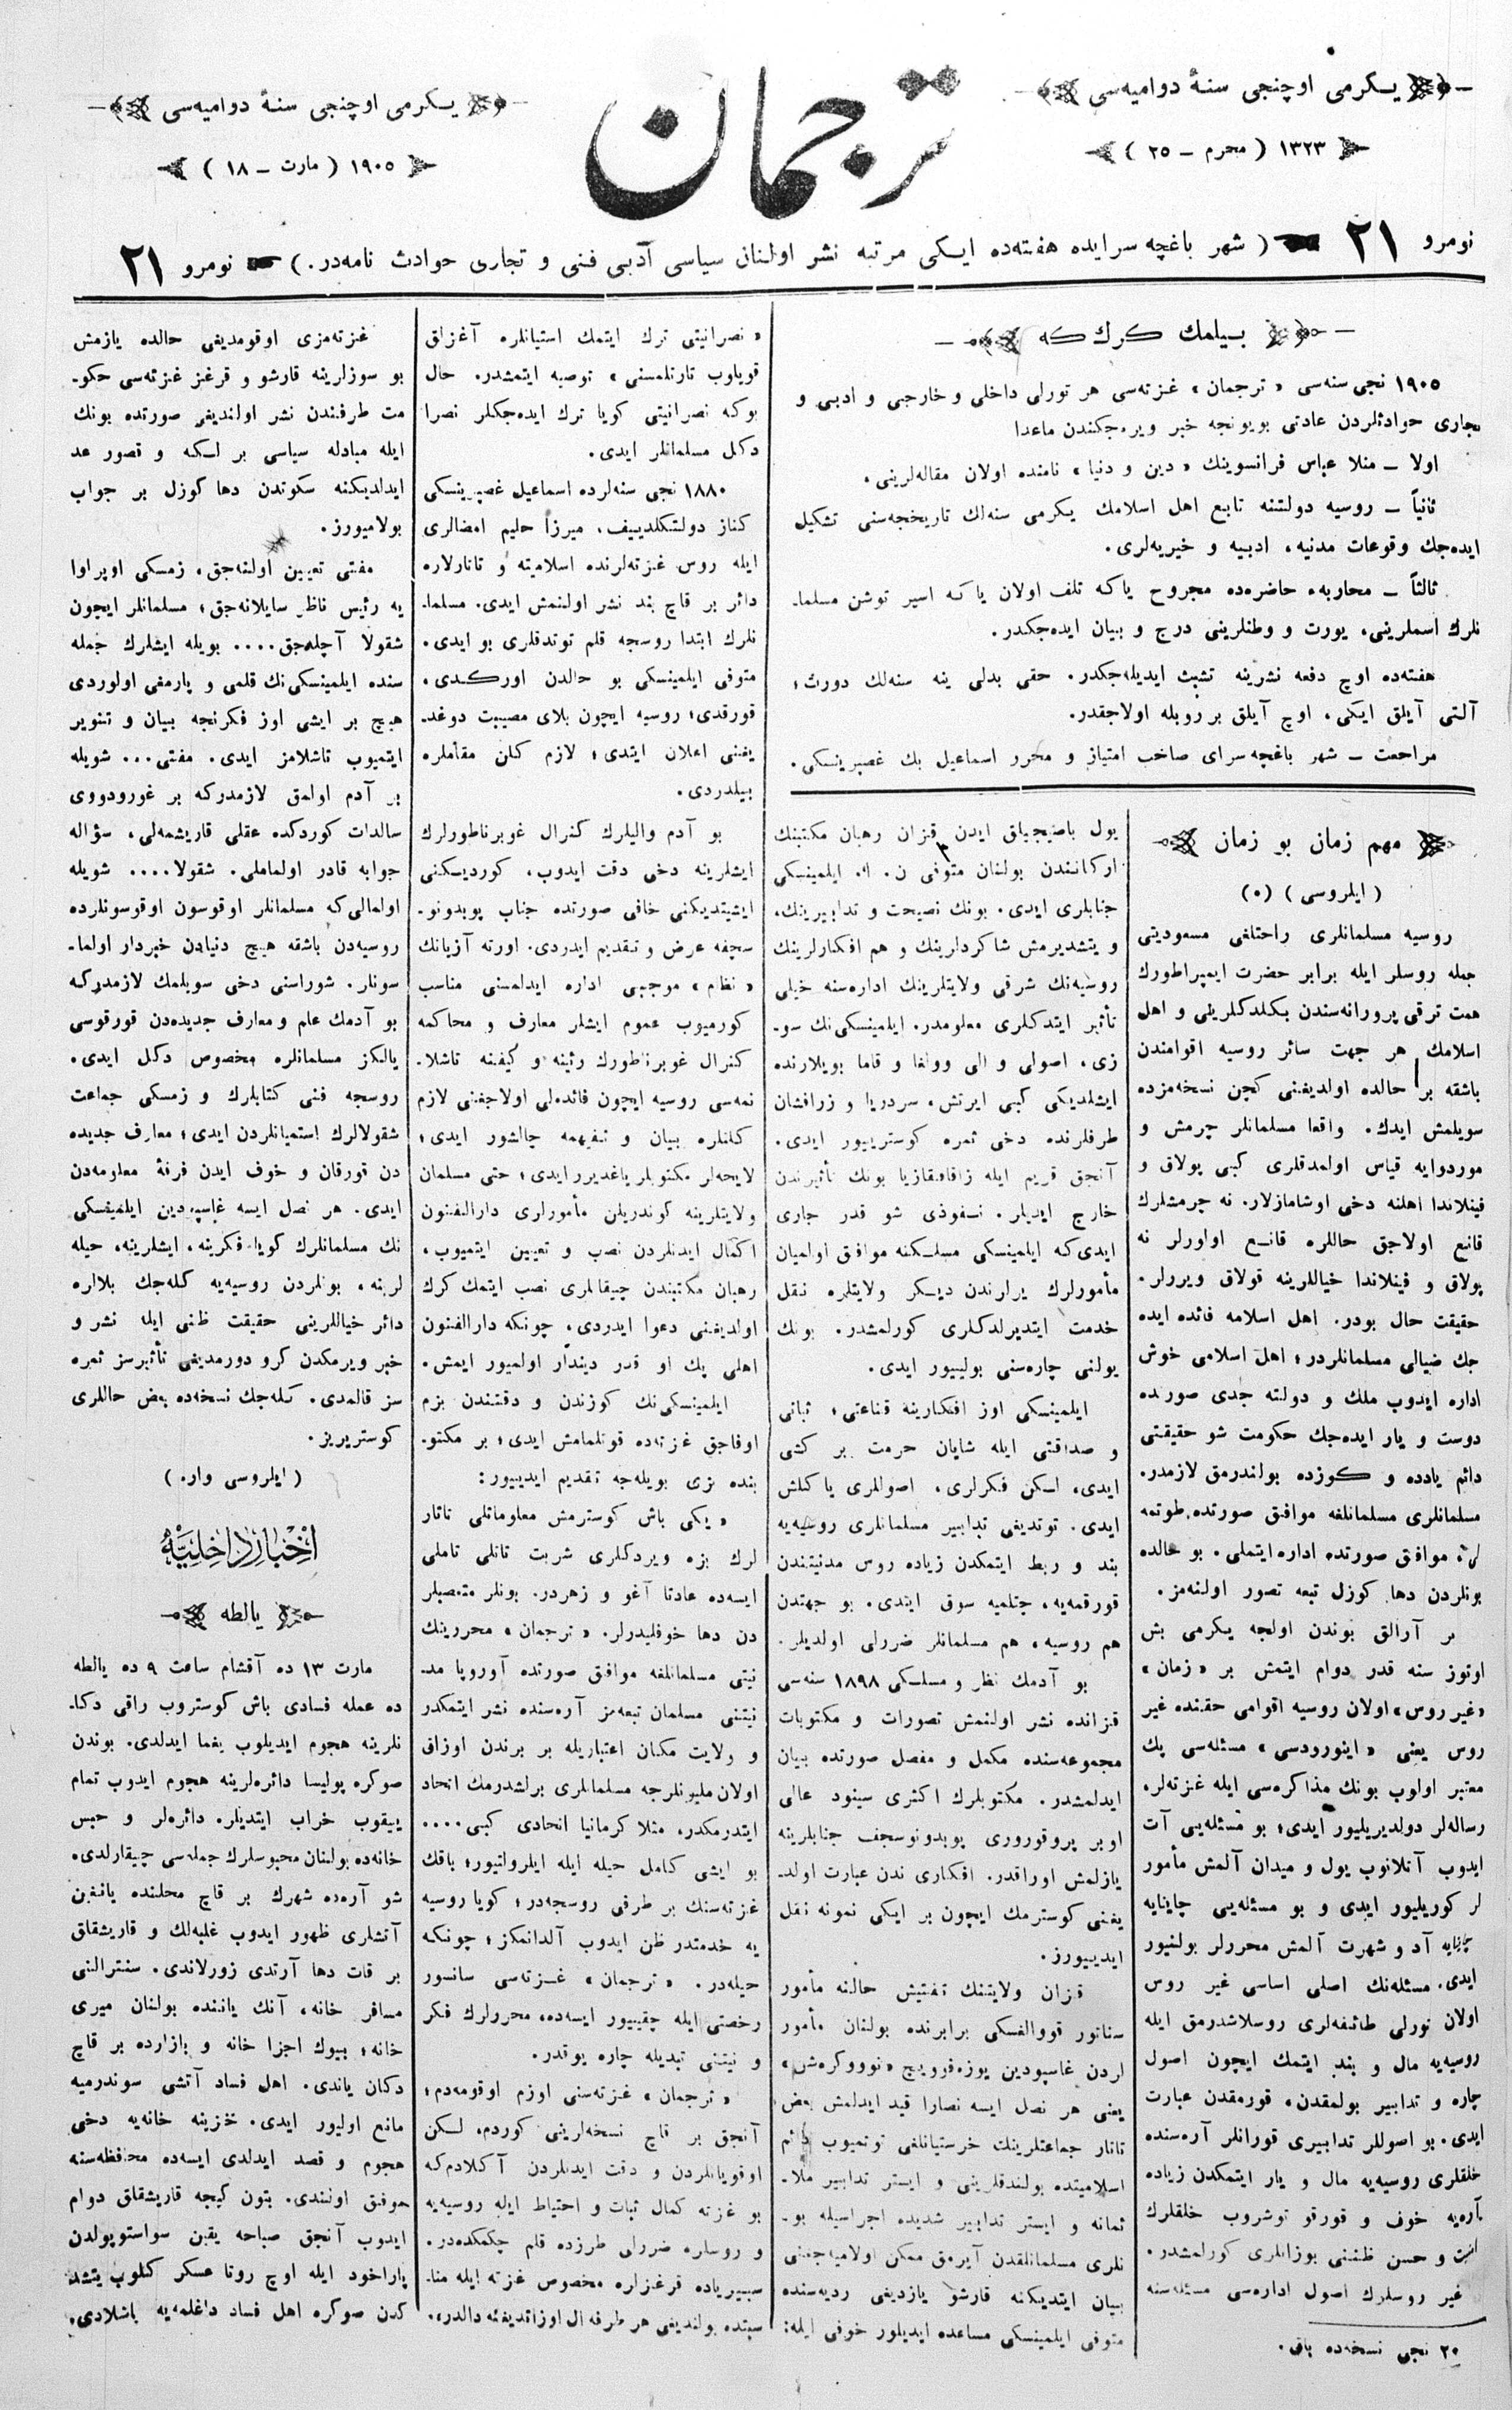 یكرمی اوچنجی سنهٔ دوامیه‌سی
۱۳۲۳ ( محرم ـ ۲۵ )
ترجمان
یكرمی اوچنجی سنهٔ دوامیه‌سی
۱۹۰۵ ( مارت ـ ۱۸ )
نومرو ۲۱ ( شهر باغچه سرایده هفته‌ده ایكی مرتبه نشر اولنان سیاسی ادبی فنی و تجاری حوادث نامه‌در. ) نومرو ۲۱
بیلمك كرك كه
۱۹۰۵ نجی سنه‌سی « ترجمان » غزته‌سی هر تورلی داخلی و خارجی و ادبی و
تجاری حوادثلردن عادتی بویونجه خبر ویره‌جكندن ماعدا
اولا ـ منلا عباس فرانسوینك « دین و دنیا » نامنده اولان مقاله‌لرینی.
ثانیاً ـ روسیه دولتنه تابع اهل اسلامك یكرمی سنه‌لك تاریخجه‌سنی تشكیل
ایده‌جك وقوعات مدنیه، ادبیه و خیریه‌لری.
ثالثاً ـ محاربهء حاضره‌ده مجروح یاكه تلف اولان یا كه اسیر توشن مسلما‌ـ
نلرك اسملرینی، یورت و وطنلرینی درج و بیان ایده‌جكدر.
هفته‌ده اوچ دفعه نشرینه تشبث ایدیله‌جكدر. حقی بدلی ینه سنه‌لك دورت؛
آلتی آیلق ایكی، اوچ آیلق بر روبله اولاجقدر.
مراجعت ـ شهر باغچه‌سرای صاحب امتیاز و محرر اسماعیل بك غصپرینسكی.
مهم زمان بو زمان
( ایلروسی ) (٥)
روسیه مسلمانلری راحتلغی مسعودیتی
جمله روسلر ایله برابر حضرت ایمپراطورك
همت ترقی پرورانه‌سندن بكلدكلرینی و اهل
اسلامك هر جهت سائر روسیه اقوامندن
باشقه بر حالده اولدیغنی كچن نسخه‌مزده
سویلمش ایدك. واقعا مسلمانلر چرمش و
موردوایه قیاس اولمدقلری كبی پولاق و
فینلاندا اهلنه دخی اوشامازلار. نه چرمشلرك
قانع اولاجق حاللره قانع اولورلر نه
پولاق و فینلاندا خیاللرینه قولاق ویررلر.
حقیقت حال بودر. اهل اسلامه فائده ایده
جك ضیالی مسلمانلردر؛ اهل اسلامی خوش
اداره ایدوب ملك و دولته جدی صورتده
دوست و یار ایده‌جك حكومت شو حقیقتی
دائم یادده و كوزده بولندرمق لازمدر.
مسلمانلری مسلمانلغه موافق صورتده طوتمه
لی، موافق صورتده اداره ایتملی. بو حالده
بونلردن دها كوزل تبعه تصور اولنه‌مز.
بر آرالق بوندن اولجه یكرمی بش
اوتوز سنه قدر دوام ایتمش بر « زمان »
« غیر روس » اولان روسیه اقوامی حقنده غیر
روس یعنی « اینورودسی » مسئله‌سی پك
معتبر اولوب بونك مذاكره‌سی ایله غزته‌لر،
رساله‌لر دولدیریلیور ایدی؛ بو مسئله‌یی آت
ایدوب آتلانوب یول و میدان آلمش مأمور
لر كوریلیور ایدی و بو مسئله‌یی چاینایه
چاینایه آد و شهرت آلمش محررلر بولنیور
ایدی. مسئله‌نك اصلی اساسی غیر روس
اولان تورلی طائفه‌لری روسلاشدرمق ایله
روسیه‌یه مال و بند ایتمك ایچون اصول
چاره و تدابیر بولمقدن، قورمقدن عبارت
ایدی. بو اصوللر تدابیری قورانلر آره‌سنده
خلقلری روسیه‌یه مال و یار ایتمكدن زیاده
آره‌یه خوف و قورقو توشروب خلقلرك
نیت و حسن ظننی بوزانلری كورلمشدر.
غیر روسلرك اصول اداره‌سی مسئله‌سنه
۲۰ نجی نسخه‌ده باق.
یول باصیجیلق ایدن قزان رهبان مكتبنك
اركانندن بولنان متوفی ن. ا. ایلمینسكی
جنابلری ایدی. بونك نصیحت و تدابیرینك،
و یتشدیرمش شاكردلرینك و هم افكارلرینك
روسیه‌نك شرقی ولایتلرینك اداره‌سنه خیلی
تأثیر ایتدكلری معلومدر. ایلمینسكی‌نك سو‌ـ
زی، اصولی و الی وولغا و قاما بویلارنده
ایشلدیكی كبی ایرتش، سردریا و زرافشان
طرفلرنده دخی ثمره كوسترییور ایدی.
آنجق قریم ایله زاقافقازیا بونك تأثیرندن
خارج ایدیلر. نفوذی شو قدر جاری
ایدی‌كه ایلمینسكی مسلكنه موافق اولمیان
مأمورلرك یرلرندن دیكر ولایتلره نقل
خدمت ایتدیرلدكلری كورلمشدر. بونك
یولنی چاره‌سنی بولییور ایدی.
ایلمینسكی اوز افكارینه قناعتی؛ ثباتی
و صداقتی ایله شایان حرمت بر كشی
ایدی، لكن فكرلری، اصوللری یاكلش
ایدی. توتدیغی تدابیر مسلمانلری روسیه‌یه
بند و ربط ایتمكدن زیاده روس مدنیتندن
قورقمه‌یه، چتلمیه سوق ایتدی. بو جهتدن
هم روسیه، هم مسلمانلر ضررلی اولدیلر.
بو آدمك نظر و مسلكی ۱۸۹۸ سنه‌سی
قزانده نشر اولنمش تصورات و مكتوبات
مجموعه‌سنده مكمل و مفصل صورتده بیان
ایدلمشدر. مكتوبلرك اكثری سینود عالی
اوبر پروقوروری پوبدونوسجف جنابلرینه
یازلمش اوراقدر. افكاری ندن عبارت اولد‌ـ
یغنی كوسترمك ایچون بر ایكی نمونه نقل
ایدییورز.
قزان ولایتنك تفتیش حالنه مأمور
سناتور قووالفسكی برابرنده بولنان مأمور
لردن غاسپودین یوزه‌فوویچ « نوووكره‌شن »
یعنی هر نصل ایسه نصارا قید ایدلمش بعض
تاتار جماعتلرینك خرستیانلغی توتمیوب دائم
اسلامیتده بولندقلرینی و ایستر تدابیر ملا‌ـ
ئمانه و ایستر تدابیر شدیده اجراسیله بو‌ـ
نلری مسلمانلقدن آیرمق ممكن اولامیه‌جغنی
بیان ایتدیكنه قارشو یازدیغی ردیه‌سنده
متوفی ایلمینسكی مساعده ایدیلور خوفی ایله:
« نصرانیتی ترك ایتمك استیانلره آغزلق
قویاوب تارتلمسنی » توصیه ایتمشدر. حال
بوكه نصرانیتی كویا ترك ایده‌جكلر نصرا
دكل مسلمانلر ایدی.
۱۸۸۰ نجی سنه‌لرده اسماعیل غصپرینسكی
كناز دولتكلدییف، میرزا حلیم امضالری
ایله روس غزته‌لرنده اسلامیته و تاتارلاره
دائر بر قاچ بند نشر اولنمش ایدی. مسلما‌ـ
نلرك ابتدا روسجه قلم توتدقلری بو ایدی.
متوفی ایلمینسكی بو حالدن اوركدی،
قورقدی؛ روسیه ایچون بلای مصیبت دوغد‌ـ
یغنی اعلان ایتدی؛ لازم كلن مقاملره
بیلدردی.
بو آدم والیلرك كنرال غوبرناطورلرك
ایشلرینه دخی دقت ایدوب، كوردیكنی
ایشیتدیكنی خافی صورتده جناب پوبدونو‌ـ
سجفه عرض و تقدیم ایدردی. اورته آزیانك
« نظام » موجبی اداره ایدلمسنی مناسب
كورمیوب عموم ایشلر معارف و محاكمه
كنرال غوبرناطورك رئینه و كیفنه تاشلا‌ـ
نمه‌سی روسیه ایچون فائده‌لی اولاجغنی لازم
كلنلره بیان و تفهیمه چالشور ایدی؛
لایحه‌لر مكتوبلر یاغدیرر ایدی؛ حتی مسلمان
ولایتلرینه كوندریلن مأمورلری دارالفنون
اكمال ایدنلردن نصب و تعیین ایتمیوب،
رهبان مكتبندن چیقانلری نصب ایتمك كرك
اولدیغنی دعوا ایدردی، چونكه دارالفنون
اهلی پك او قدر دیندار اولمیور ایمش.
ایلمینسكی‌نك كوزندن و دقتندن بزم
اوفاجق غزته‌ده قوتلمامش ایدی؛ بر مكتو‌ـ
بنده بزی بویله‌جه تقدیم ایدییور:
« یكی باش كوسترمش معلوماتلی تاتار
لرك بزه ویردكلری شربت تاتلی تاملی
ایسه‌ده عادتا آغو و زهردر. بونلر متعصبلر
دن دها خوفلیدرلر. « ترجمان » محررینك
نیتی مسلمانلغه موافق صورتده آوروپا مد‌ـ
نیتنی مسلمان تبعه‌مز آره‌سنده نشر ایتمكدر
و ولایت مكان اعتباریله بر برندن اوزاق
اولان ملیونلرجه مسلمانلری برلشدرمك اتحاد
ایتدرمكدر. مثلا كرمانیا اتحادی كبی....
بو ایشی كامل حیله ایله ایلرولتیور؛ باقك
غزته‌سنك بر طرفی روسجه‌در؛ كویا روسیه
یه خدمتدر ظن ایدوب آلدانمكز؛ چونكه
حیله‌در. « ترجمان » غزته‌سی سانسور
رخصتی ایله چقییور ایسه‌ده، محررلرك فكر
و نیتنی تبدیله چاره یوقدر.
« ترجمان » غزته‌سنی اوزم اوقومه‌دم؛
آنجق بر قاچ نسخه‌لرینی كوردم، لكن
اوقویانلردن و دقت ایدنلردن آكلادم‌كه
بو غزته كمال ثبات و احتیاط ایله روسیه‌یه
و روسلره ضررلی طرزده قلم چكمكده‌در.
سیبریاده قرغزلره مخصوص غزته ایله منا‌ـ
سبتده بولندیغی هر طرفه ال اوزاتدیغنه دالدر».
غزته‌مزی اوقومدیغی حالده یازمش
بو سوزلرینه قارشو و قرغز غزته‌سی حكو‌ـ
مت طرفندن نشر اولندیغی صورتده بونك
ایله مبادله سیاسی بر لكه و قصور عد
ایدلدیكنه سكوتدن دها كوزل بر جواب
بولامیورز.
مفتی تعیین اولنه‌جق، زمسكی اوپراوا
یه رئیس ناظر سایلانه‌جق؛ مسلمانلر ایچون
شقولا آچله‌جق.... بویله ایشلرك جمله
سنده ایلمینسكی‌نك قلمی و پارمغی اولوردی
هیچ بر ایشی اوز فكرنجه بیان و تنویر
ایتمیوب تاشلامز ایدی. مفتی... شویله
بر آدم اولمق لازمدركه بر غورودووی
سالدات كوردكده عقلی قاریشمه‌لی، سؤاله
جوابه قادر اولماملی. شقولا.... شویله
اولمالی‌كه مسلمانلر اوقوسون اوقوسونلرده
روسیه‌دن باشقه هیچ دنیادن خبردار اولما‌ـ
سونلر. شوراسنی دخی سویلمك لازمدركه
بو آدمك علم و معارف جدیده‌دن قورقوسی
یالكز مسلمانلره مخصوص دكل ایدی.
روسجه فنی كتابلرك و زمسكی جماعت
شقولالرك استمیانلردن ایدی؛ معارف جدیده
دن قورقان و خوف ایدن فرقهٔ معلومه‌دن
ایدی. هر نصل ایسه غاسپودین ایلمینسكی
نك مسلمانلرك كویا فكرینه، ایشلرینه، حیله
لرینه، بونلردن روسیه‌یه كله‌جك بلالره
دائر خیاللرینی حقیقت ظنی ایله نشر و
خبر ویرمكدن كرو دورمدیغی تأثیرسز ثمره
سز قالمدی. كله‌جك نسخه‌ده بعض حاللری
كوستریریز.
( ایلروسی وار. )
اخبار داخلیه
یالطه
مارت ۱۳ ده آقشام ساعت ۹ ده یالطه
ده عمله فسادی باش كوستروب راقی دكا‌ـ
نلرینه هجوم ایدیلوب یغما ایدلدی. بوندن
صوكره پولیسا دائره‌لرینه هجوم ایدوب تمام
ییقوب خراب ایتدیلر. دائره‌لر و حبس
خانه‌ده بولنان محبوسلرك جمله‌سی چیقارلدی.
شو آره‌ده شهرك بر قاچ محلنده یانغین
آتشلری ظهور ایدوب غلبه‌لك و قاریشقلق
بر قات دها آرتدی زورلاندی. سنترالنی
مسافر خانه، آنك یاننده بولنان میری
خانه؛ بیوك اجزا خانه و بازارده بر قاچ
دكان یاندی. اهل فساد آتشی سوندرمیه
مانع اولیور ایدی. خزینه خانه‌یه دخی
هجوم و قصد ایدلدی ایسه‌ده محافظه‌سنه
موفق اولندی. بتون كیجه قاریشقلق دوام
ایدوب آنجق صباحه یقین سواستوپولدن
پاراخود ایله اوچ روتا عسكر كلوب یتشد
كدن صوكره اهل فساد داغلمه‌یه باشلادی.